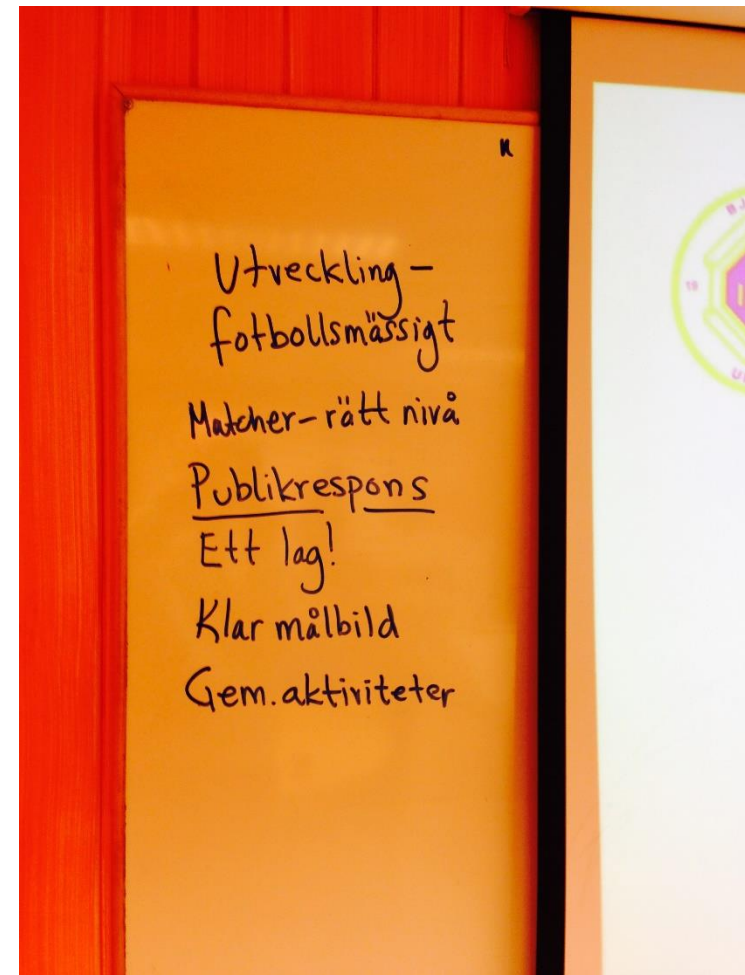 Utveckling –
fotbollsmässigt
Matcher – rätt nivå
Publikrespons
Ett lag!
Klar målbild
Gem. aktiviteter
BJ
19